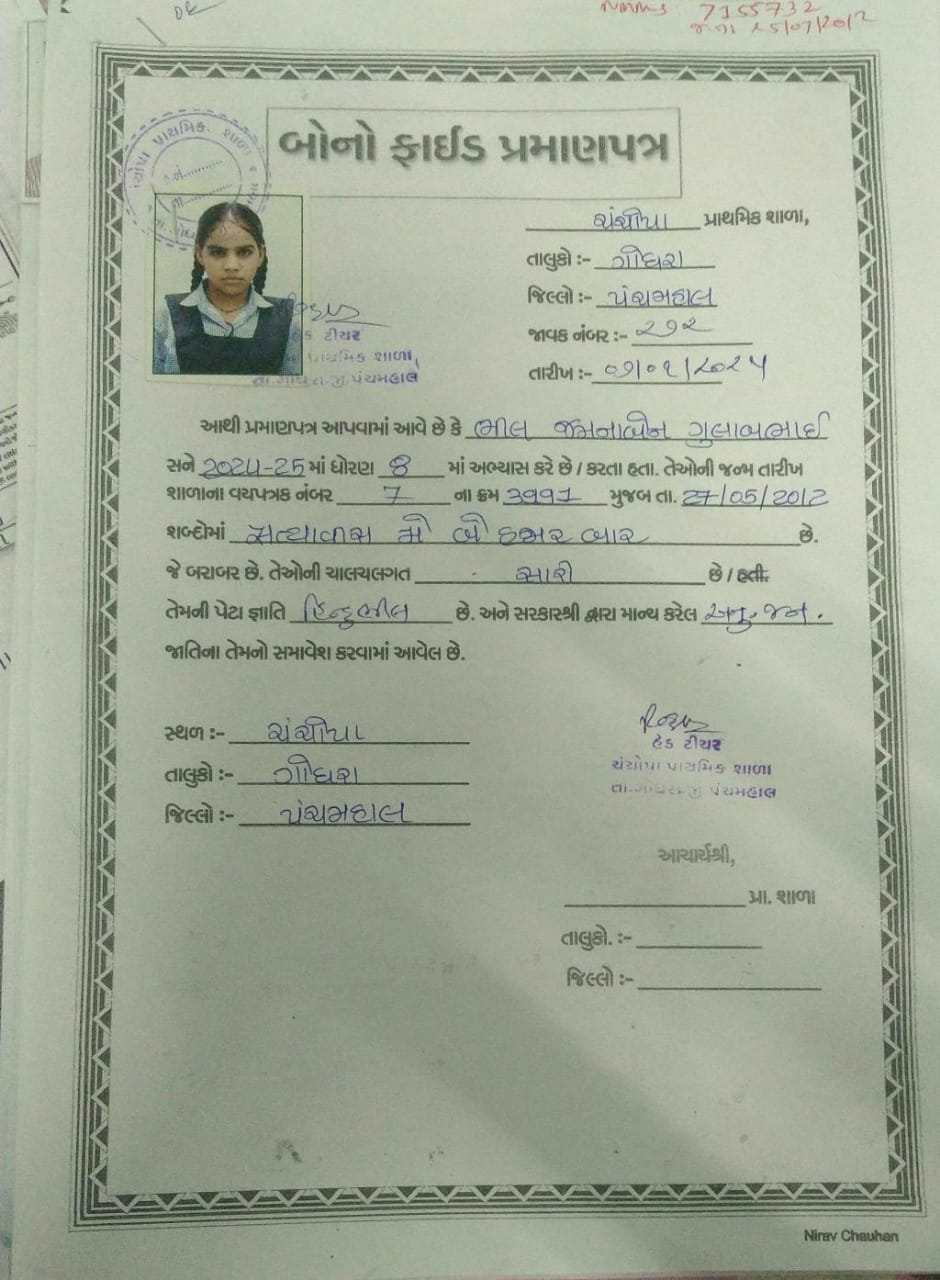 7155732
25/07/2012
બોનો ફાઈડ પ્રમાણપત્ર
ચંચોપા પ્રાથમિક શાળા,
તાલુકો :- ગોધરા
જિલ્લો :- પંચમહાલ
જાવક નંબર :- ૨૭૨
તારીખ :- ૦૭/૦૧/૨૦૨૫
હેડ ટીચર
પ્રાથમિક શાળા,
તા.ગોધરા જી.પંચમહાલ
આથી પ્રમાણપત્ર આપવામાં આવે છે કે ભીલ જમનાબેન ગુલાબભાઈ
સને 2024-25 માં ધોરણ 8 માં અભ્યાસ કરે છે / કરતા હતા. તેઓની જન્મ તારીખ
શાળાના વયપત્રક નંબર 7 ના ક્રમ 3991 મુજબ તા. 27/05/2012
શબ્દોમાં સત્યાવીસ મે બે હજાર બાર છે.
જે બરાબર છે. તેઓની ચાલચલગત સારી છે / હતી.
તેમની પેટા જ્ઞાતિ હિન્દુ ભીલ છે. અને સરકારશ્રી દ્વારા માન્ય કરેલ અનુ. જન.
જાતિના તેમનો સમાવેશ કરવામાં આવેલ છે.
સ્થળ :- ચંચોપા
તાલુકો :- ગોધરા
જિલ્લો :- પંચમહાલ
હેડ ટીચર
ચંચોપા પ્રાથમિક શાળા
તા.ગોધરા જી પંચમહાલ
આચાર્યશ્રી,
પ્રા. શાળા
તાલુકો. :-
જિલ્લો :-
Nirav Chauhan